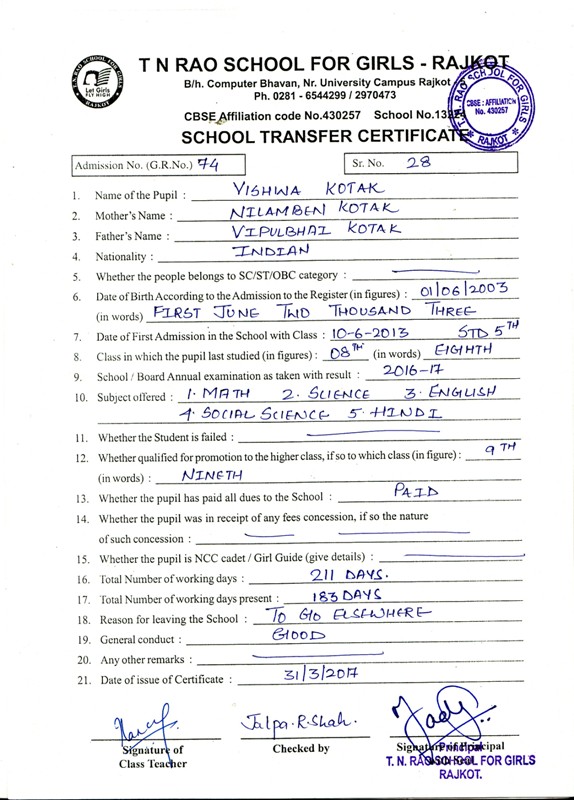 T. N. RAO SCHOOL FOR GIRLS
Let Girls
FLY HIGH
RAJKOT
T N RAO SCHOOL FOR GIRLS - RAJKOT
B/h. Computer Bhavan, Nr. University Campus Rajkot
Ph. 0281 - 6544299 / 2970473
CBSE Affiliation code No.430257 School No.13224
T. N. RAO SCHOOL FOR GIRLS
CBSE : AFFILIATION
No. 430257
RAJKOT
SCHOOL TRANSFER CERTIFICATE
Admission No. (G.R.No.) 74
Sr. No. 28
1. Name of the Pupil : VISHWA KOTAK
2. Mother's Name : NILAMBEN KOTAK
3. Father's Name : VIPULBHAI KOTAK
4. Nationality : INDIAN
5. Whether the people belongs to SC/ST/OBC category :
6. Date of Birth According to the Admission to the Register (in figures) : 01/06/2003
(in words) FIRST JUNE TWO THOUSAND THREE
7. Date of First Admission in the School with Class : 10-6-2013 STD 5TH
8. Class in which the pupil last studied (in figures) : 08TH (in words) EIGHTH
9. School / Board Annual examination as taken with result : 2016-17
10. Subject offered : 1. MATH 2. SCIENCE 3. ENGLISH
4. SOCIAL SCIENCE 5. HINDI
11. Whether the Student is failed :
12. Whether qualified for promotion to the higher class, if so to which class (in figure) : 9TH
(in words) : NINETH
13. Whether the pupil has paid all dues to the School : PAID
14. Whether the pupil was in receipt of any fees concession, if so the nature
of such concession :
15. Whether the pupil is NCC cadet / Girl Guide (give details) :
16. Total Number of working days : 211 DAYS.
17. Total Number of working days present : 183 DAYS
18. Reason for leaving the School : TO GO ELSEWHERE
19. General conduct : GOOD
20. Any other remarks :
21. Date of issue of Certificate : 31/3/2017
Jalpa.R.Shah.
Signature of
Class Teacher
Checked by
Signature of Principal
Principal
T. N. RAO SCHOOL FOR GIRLS
RAJKOT.